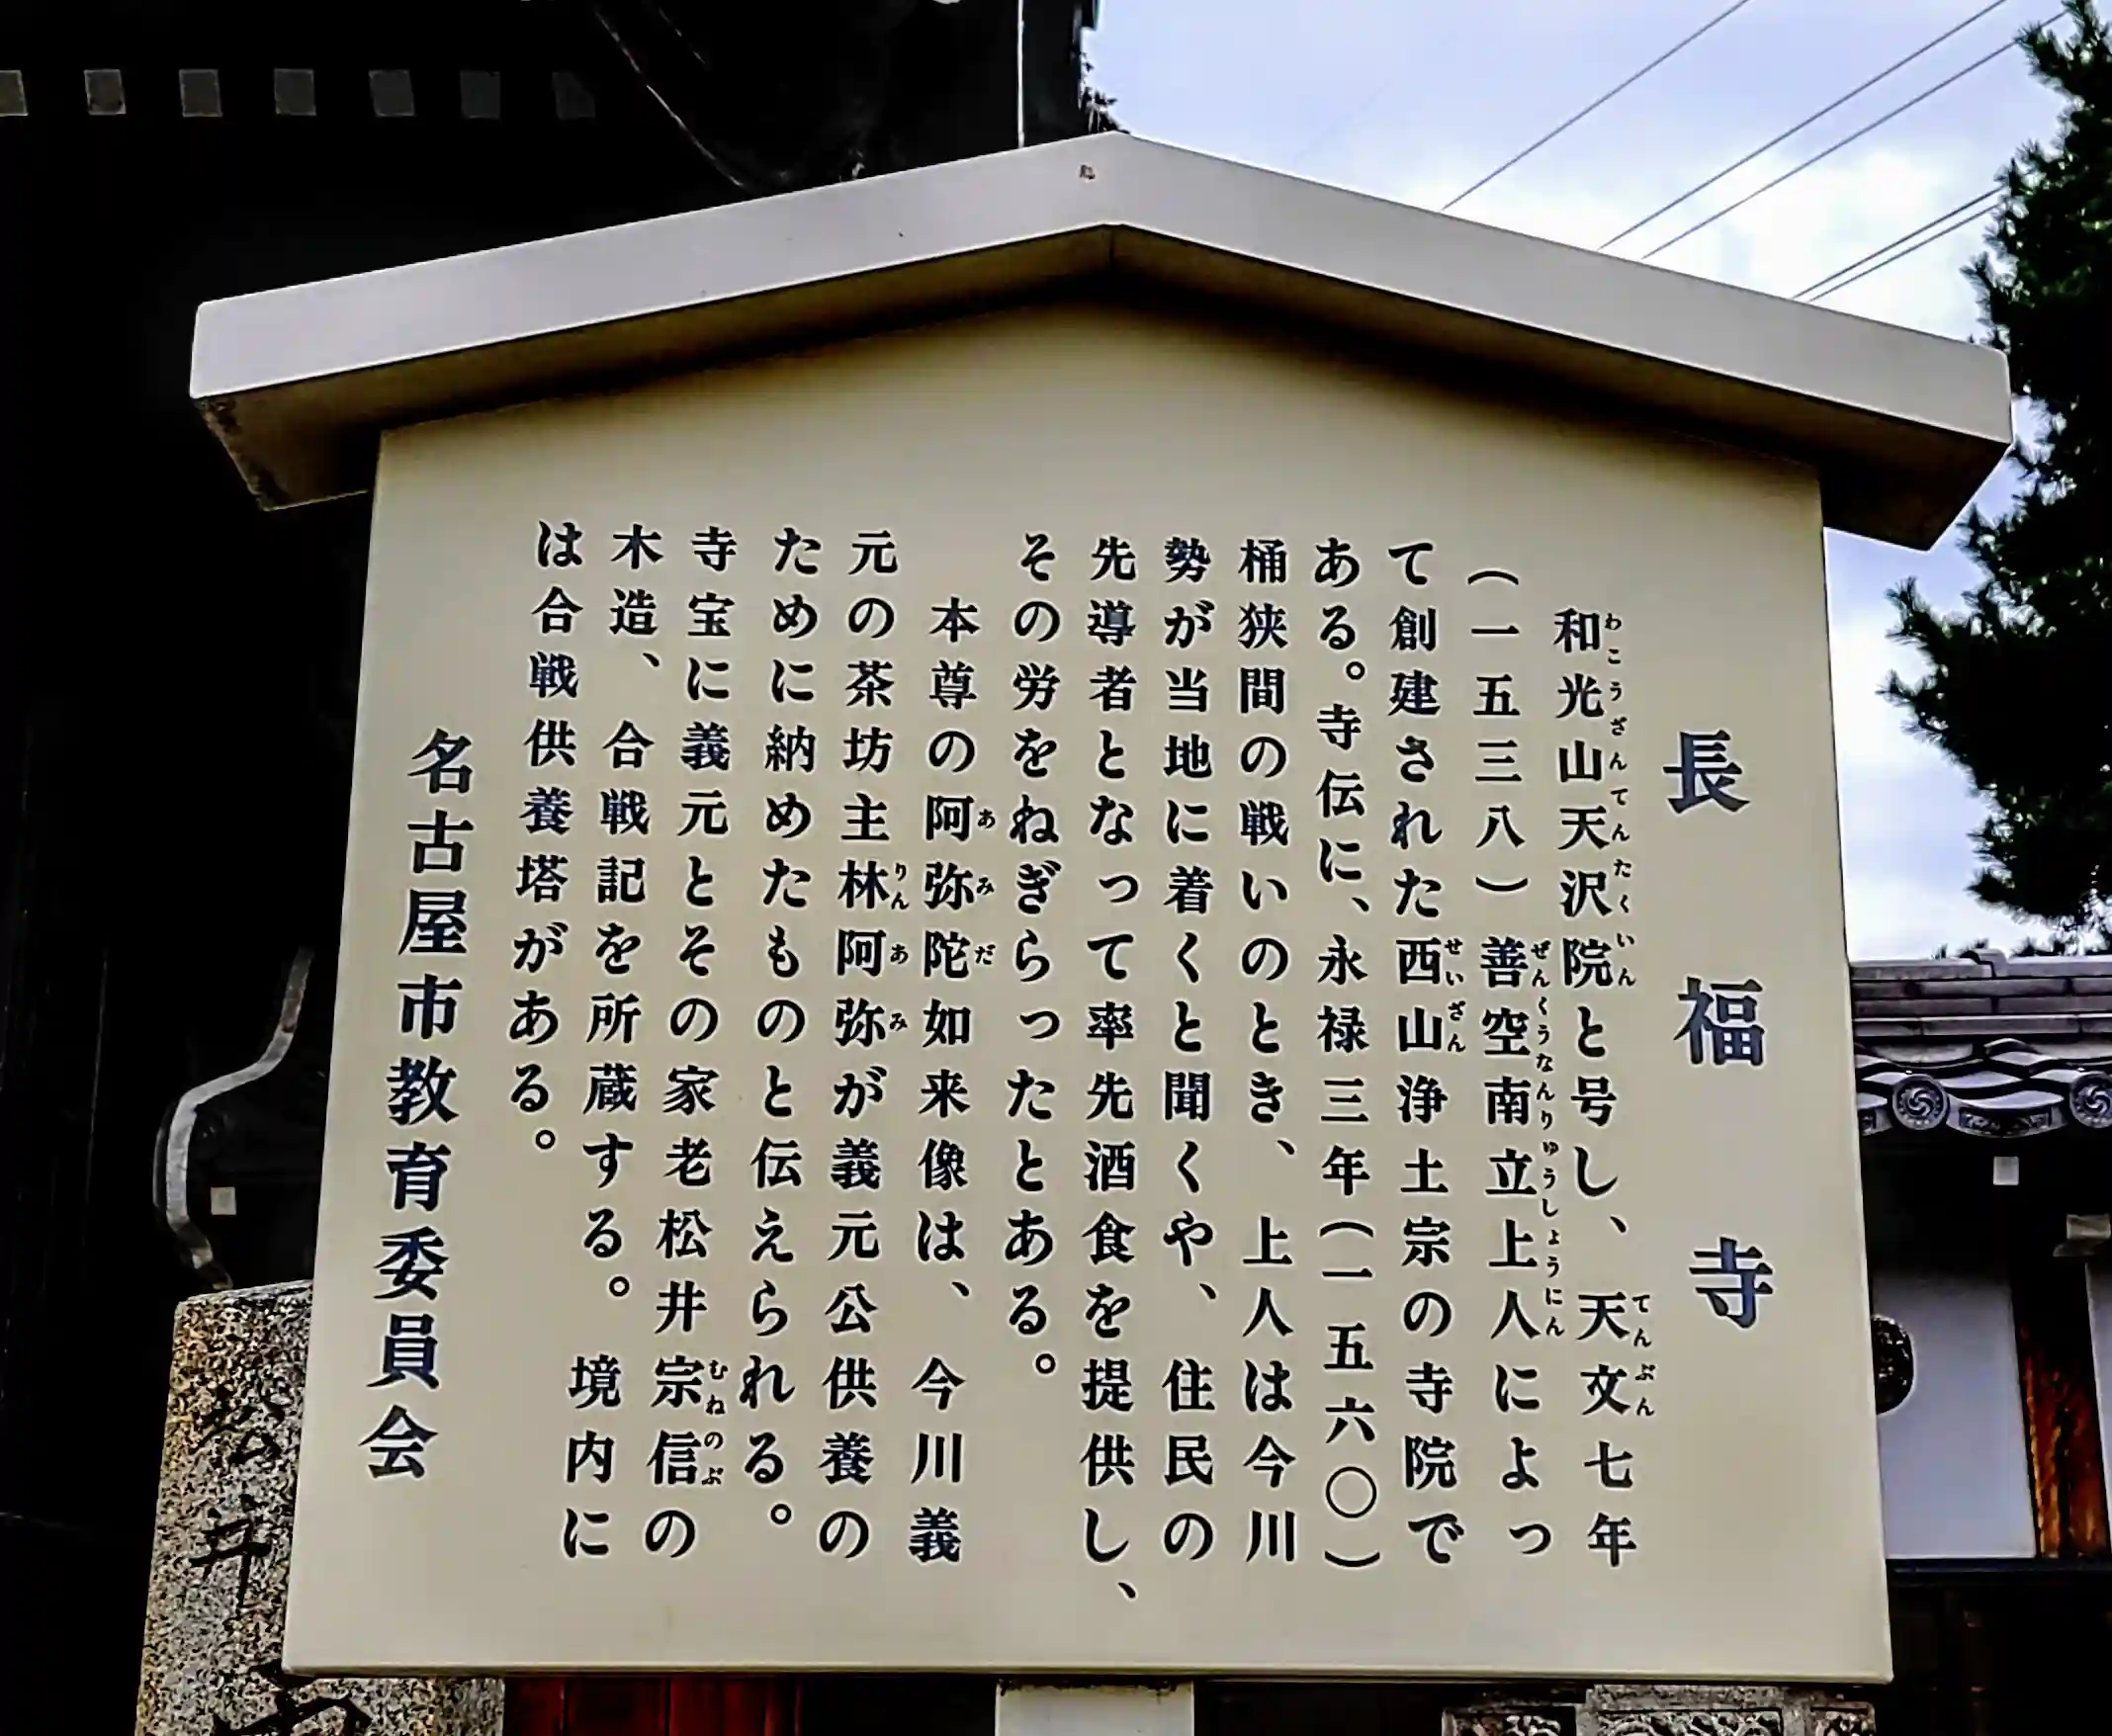 長福寺
和光山天沢院と号し、天文七年
（一五三八）善空南立上人によっ
て創建された西山浄土宗の寺院で
ある。寺伝に、永禄三年（一五六〇）
桶狭間の戦いのとき、上人は今川
勢が当地に着くと聞くや、住民の
先導者となって率先酒食を提供し、
その労をねぎらったとある。
本尊の阿弥陀如来像は、今川義
元の茶坊主林阿弥が義元公供養の
ために納めたものと伝えられる。
寺宝に義元とその家老松井宗信の
木造、合戦記を所蔵する。境内に
は合戦供養塔がある。
名古屋市教育委員会
わこうざんてんたくいん
てんぶん
ぜんくうなんりゅうしょうにん
せいざん
あみだ
りんあみ
むねのぶ
松井